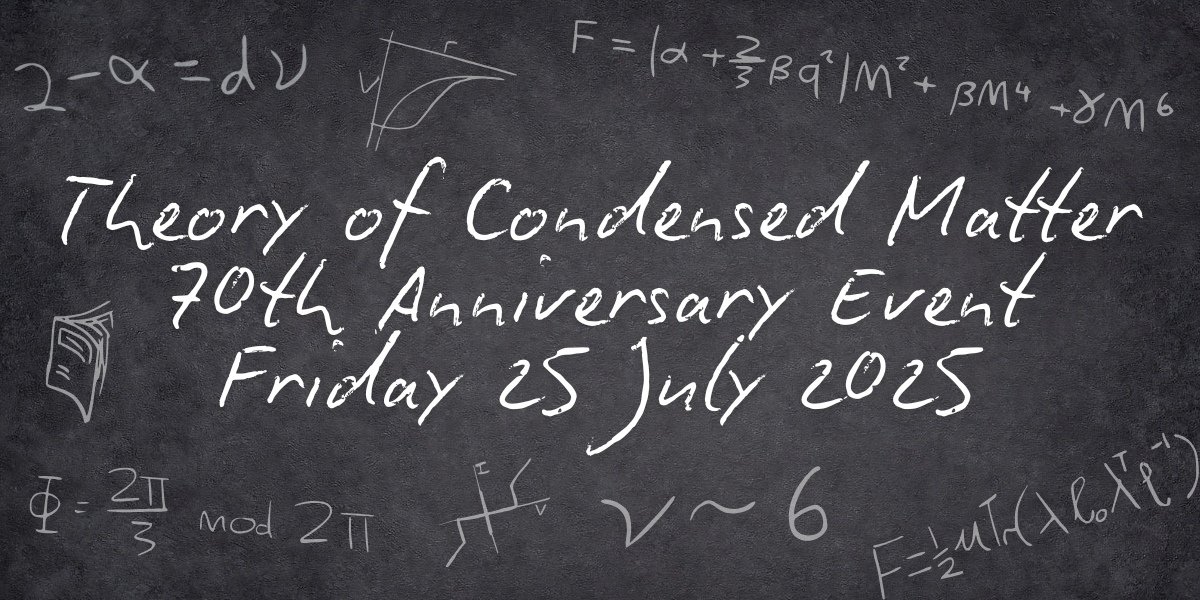 2-α=dν
V r
F=|α+2/3 βq²|M²+βM⁴+γM⁶
Theory of Condensed Matter
70th Anniversary Event
Friday 25 July 2025
Φ=2π/3 mod 2π
I V
ν~6
F=½μTr(λℓ₀λᵀℓ⁻¹)